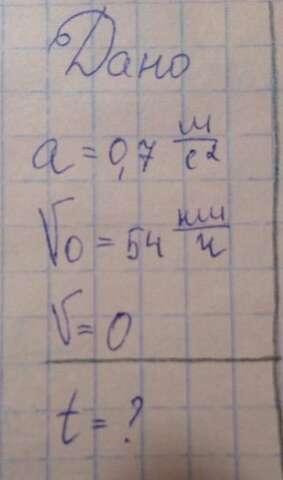 Дано
a = 0,7 м/с²
V₀ = 54 км/ч
V = 0
t = ?